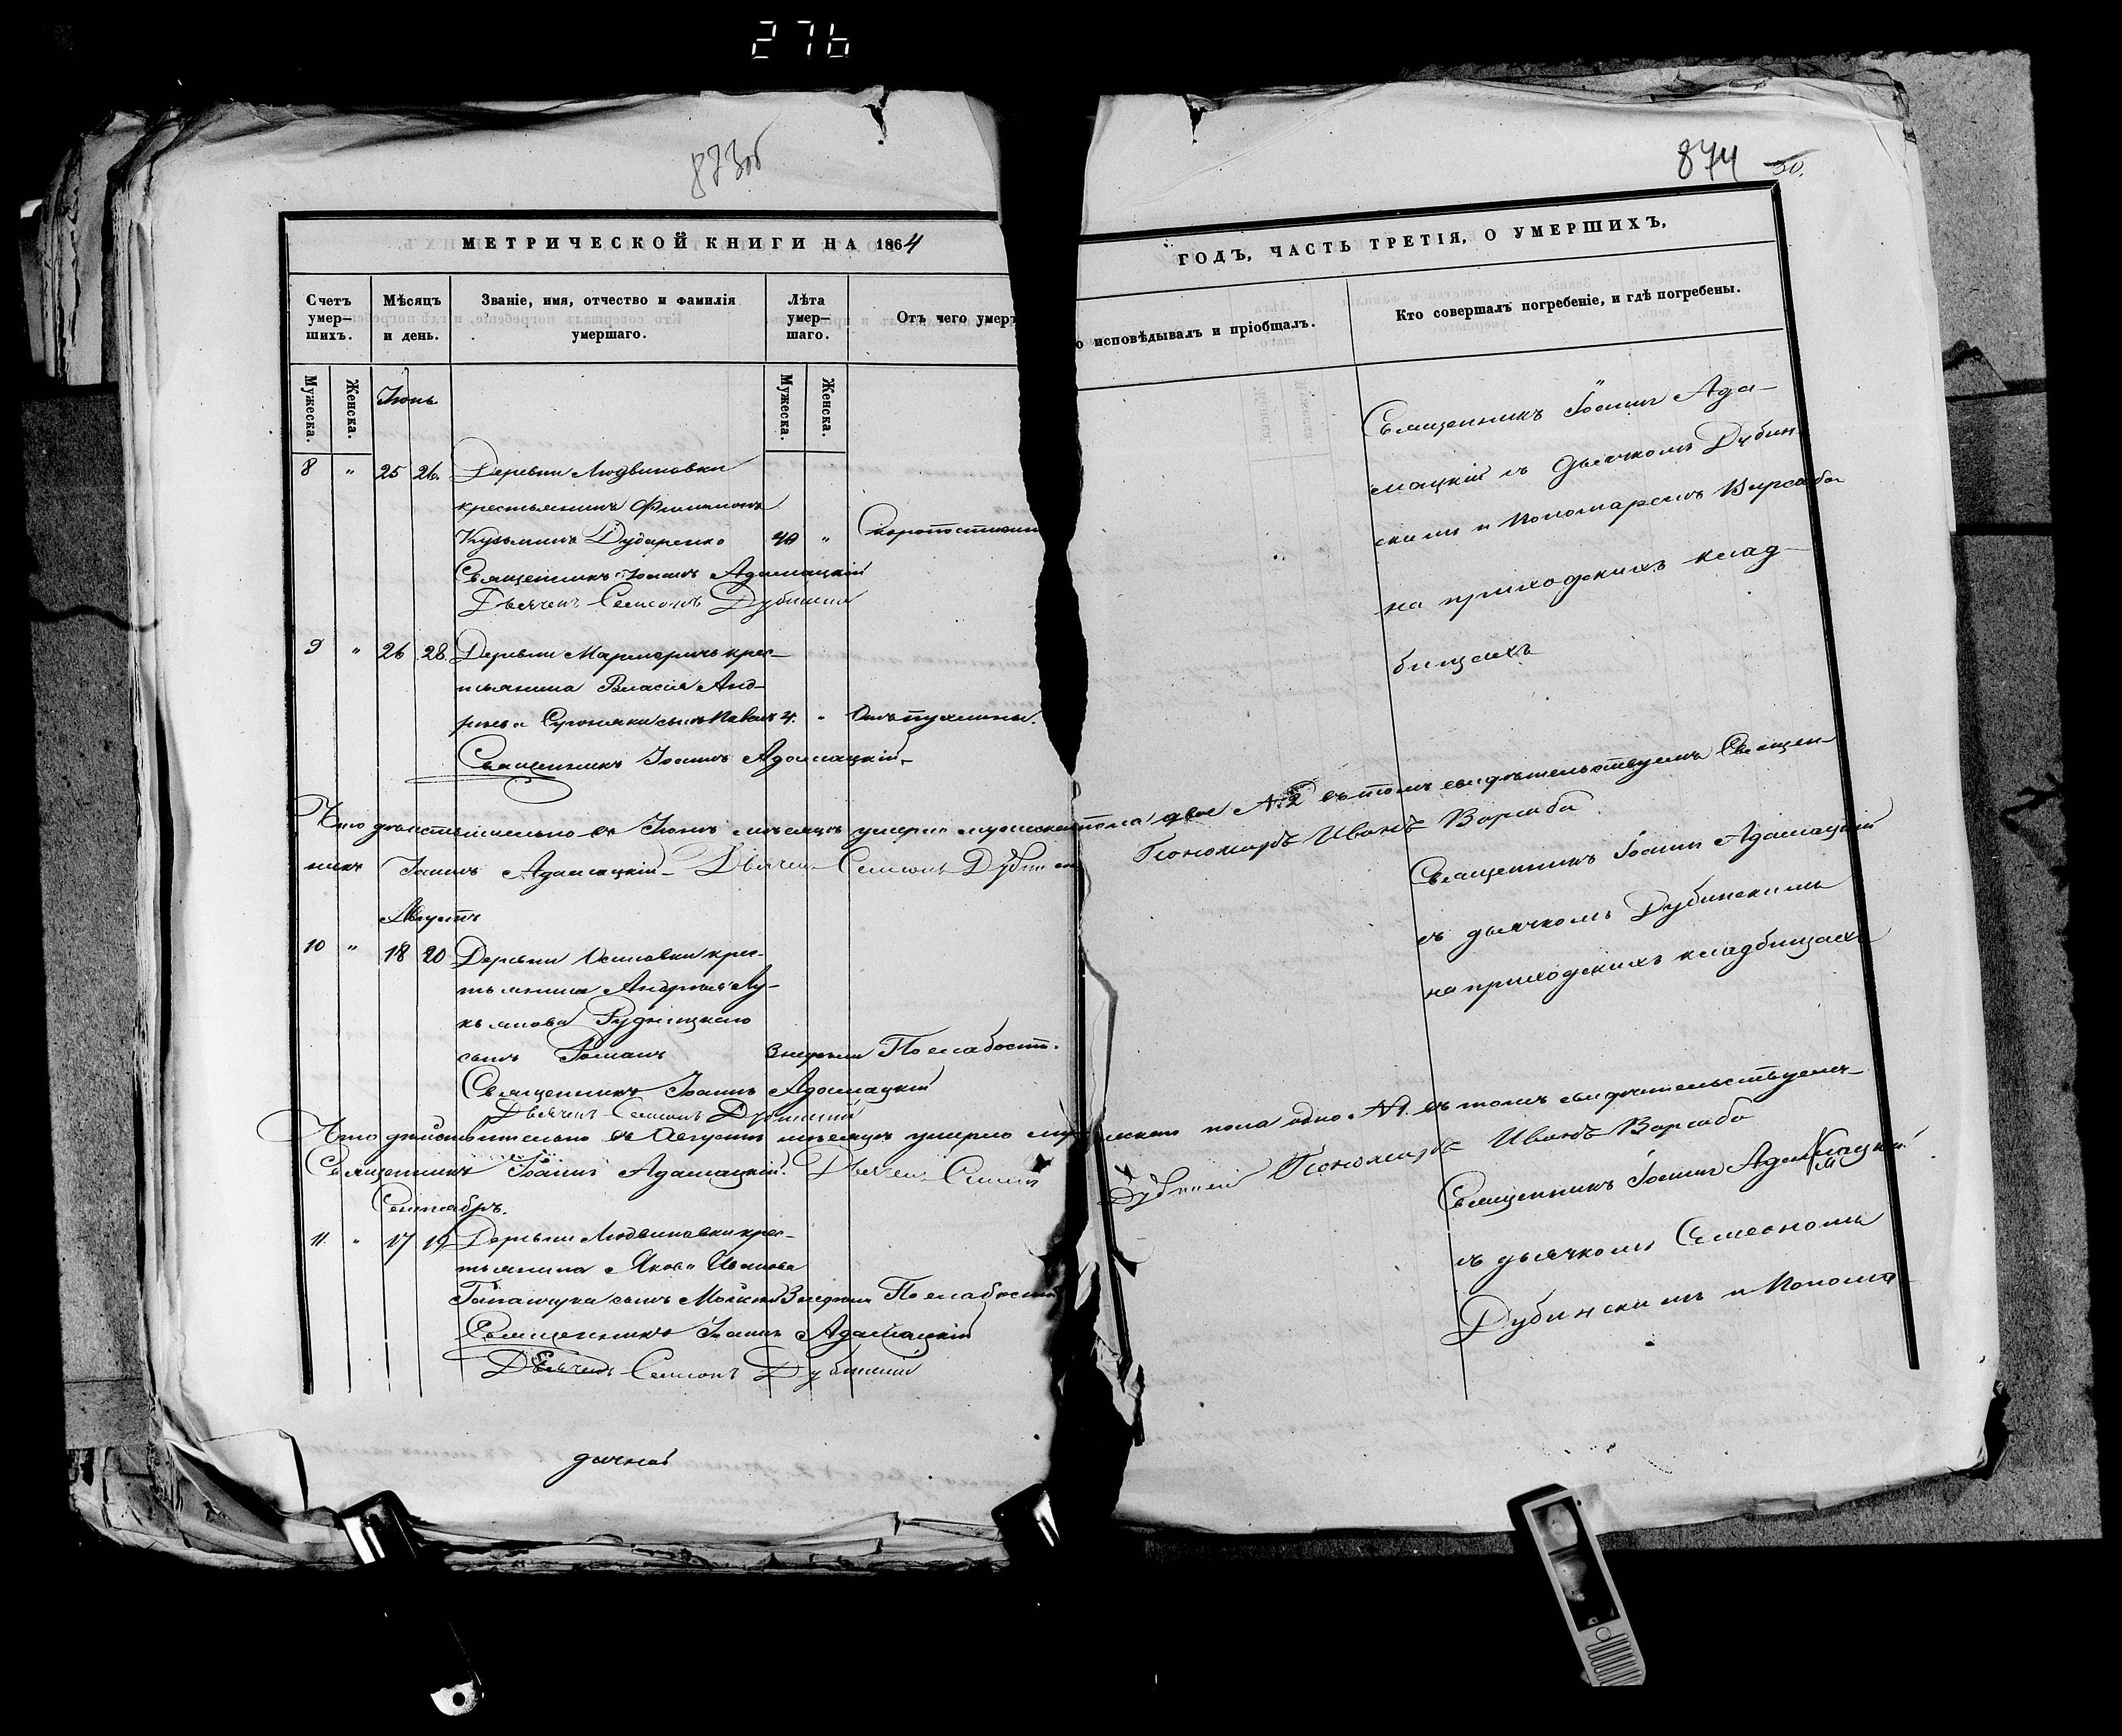 276
873об
874 50.
МЕТРИЧЕСКОЙ КНИГИ НА 1864
ГОДЪ, ЧАСТЬ ТРЕТІЯ, О УМЕРШИХЪ,
Счетъ умер—шихъ.
Мѣсяцъ и день.
Званіе, имя, отчество и фамилія умершаго.
Лѣта умер—шаго.
Отъ чего умер
о исповѣдывалъ и пріобщалъ.
Кто совершалъ погребеніе, и гдѣ погребены.
Мужеска.
Женска.
Мужеска.
Женска.
Іюнь
8 " 25 26. Деревни Людвиновки
крестьянинъ Филимонъ
Кузьминъ Дударенко 40 " Скоропостижно
Священникъ Іоаннъ Адамацкій
Дьячекъ Семіонъ Дубинскій
Священникъ Іоаннъ Ада—
мацкій съ дьячкомъ Дубин
скимъ и Пономаремъ Варсаба
на приходскихъ клад—
бищахъ
9 " 26 28. Деревни крес—
тьянина Власія Анд—
сынъ Павелъ 4. " Отъ пухлины.
Священникъ Іоаннъ Адамацкій
Что дѣйствительно въ Іюнѣ мѣсяцѣ умерло мужеска пола двое №2 въ томъ свидѣтельствуемъ Священ—
никъ Іоаннъ Адамацкій Дьячекъ Семіонъ Дубинскій Пономарь Иванъ Варсаба
Августъ
10 " 18 20 Деревни Осиповки крес—
тьянина Андрея Лу—
кьянова Рудницкаго
сынъ Романъ 3 недели По слабости.
Священникъ Іоаннъ Адамацкій
Дьячекъ Семіонъ Дубинскій
Священникъ Іоаннъ Адамацкій
съ дьячкомъ Дубинскимъ
на приходскихъ кладбищахъ
Что дѣйствительно въ Августѣ мѣсяцѣ умерло мужескаго пола одно №1. въ томъ свидѣтельствуемъ—
Священникъ Іоаннъ Адамацкій. Дьячекъ Семіонъ Дубинскій Пономарь Иванъ Варсаба
Сентябрь.
11. " 17 19 Деревни Людвиновки крес—
тьянина Якова Иванова
сынъ 3 недели По слабости
Священникъ Іоаннъ Адамацкій
Дьячекъ Семіонъ Дубинскій
Священникъ Іоаннъ Адамацкій
съ дьячкомъ Семеономъ
Дубинскимъ и Понома—